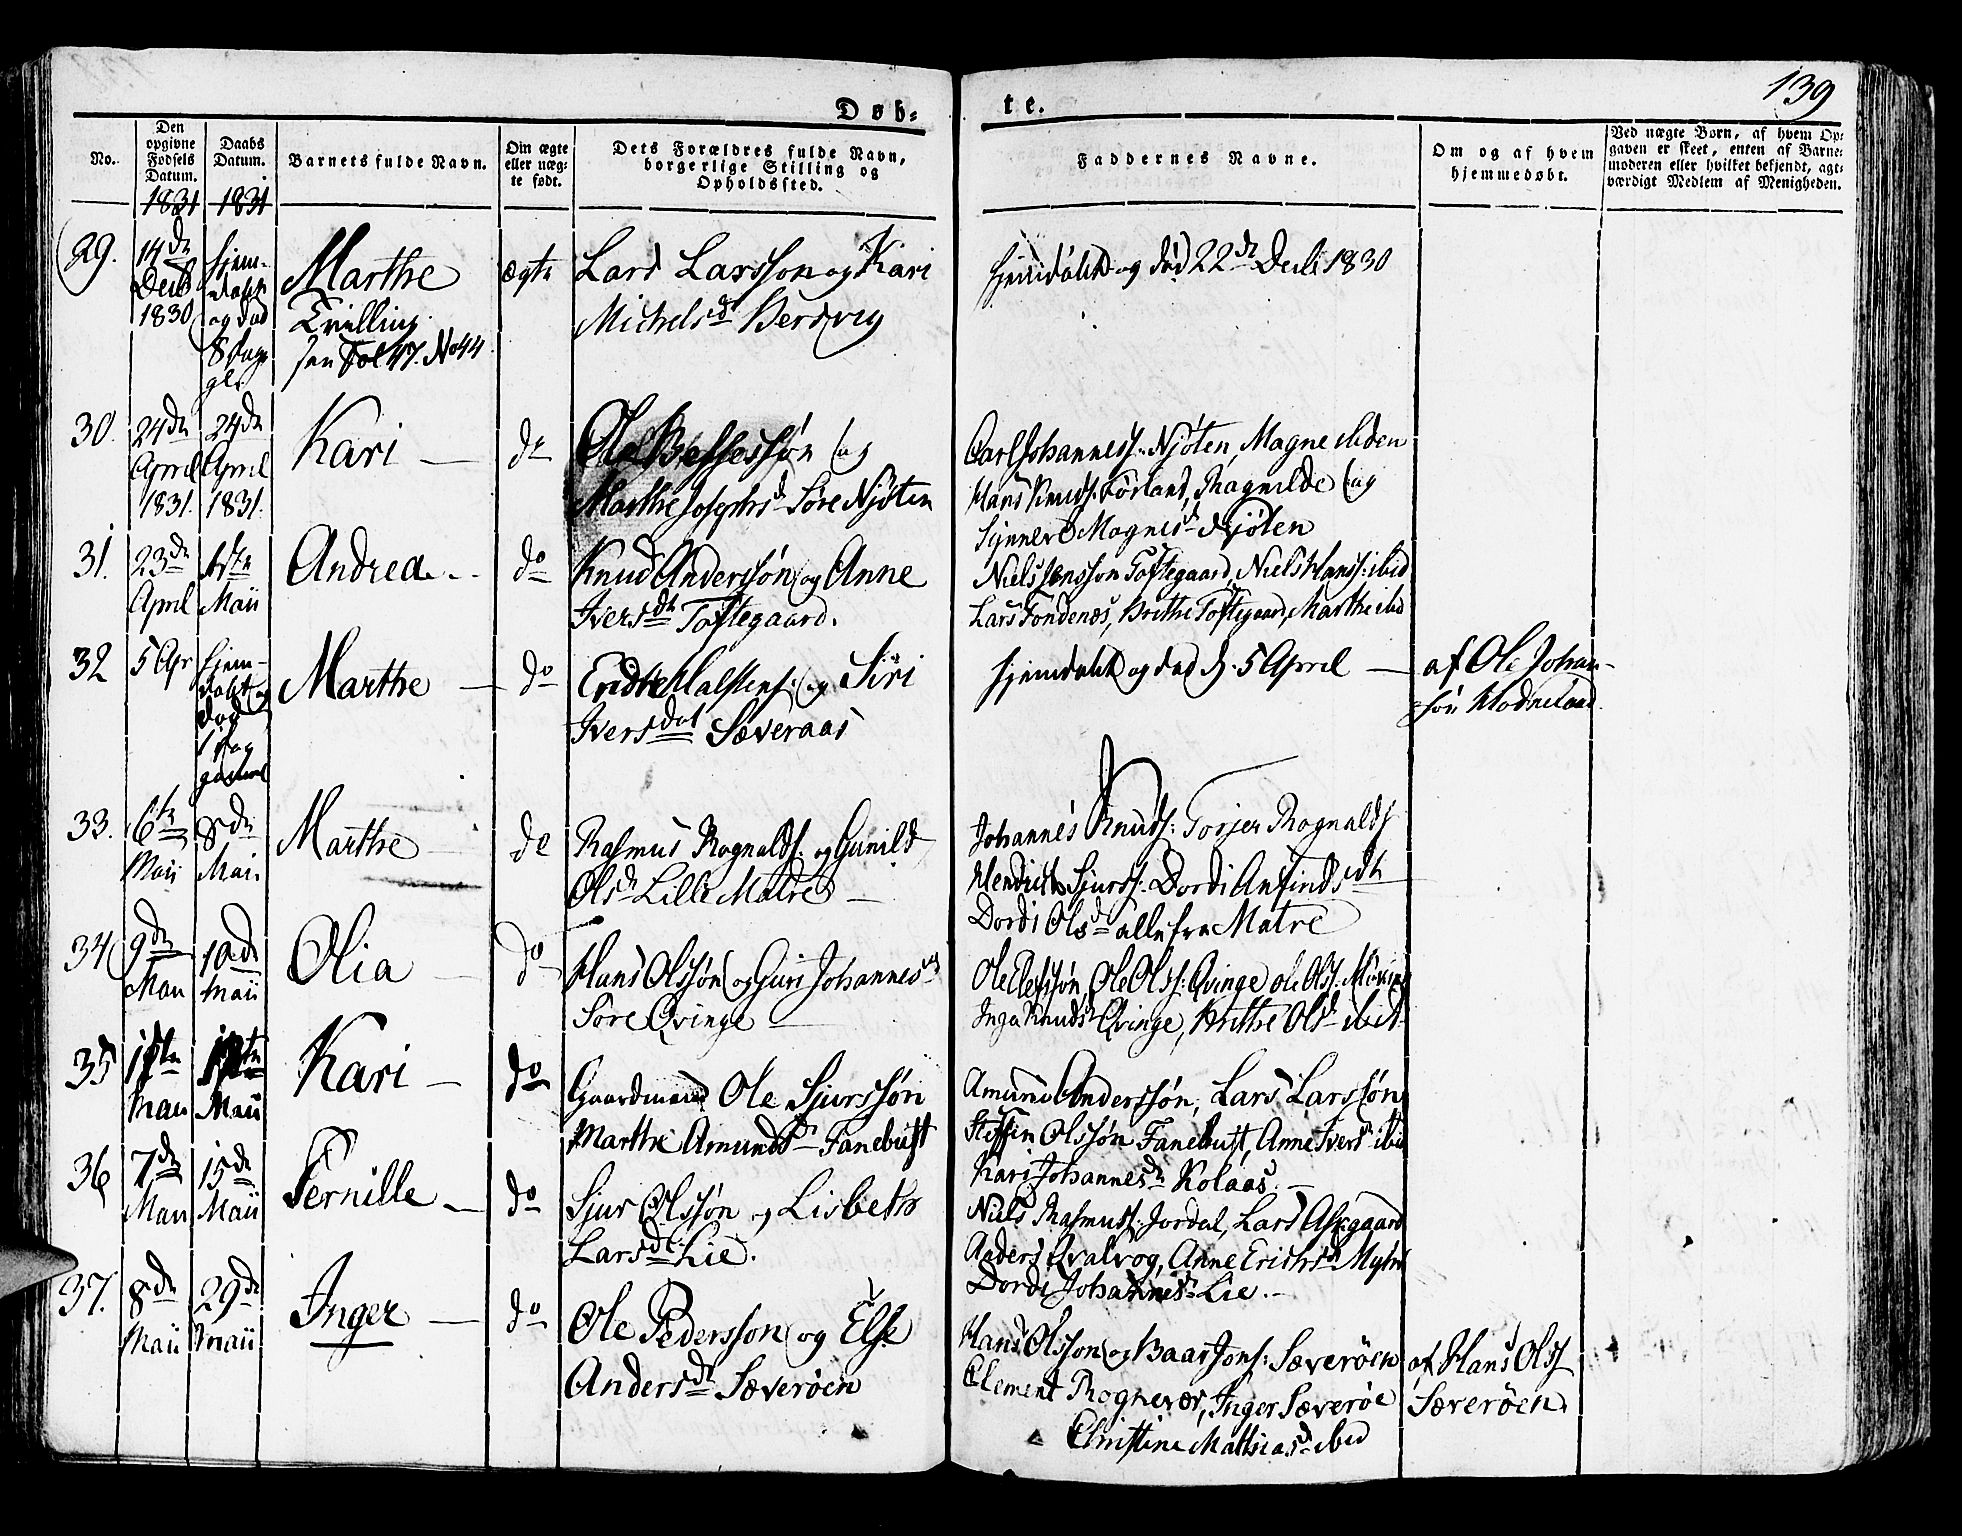 139
Døb-
te.
No.
Den
opgivne
Fødsels
Datum.
Daabs
Datum.
Barnets fulde Navn.
Om ægte
eller næg-
te født.
Dets Forældres fulde Navn,
borgerlige Stilling og
Opholdssted.
Faddernes Navne.
Om og af hvem
hjemmedøbt.
Ved nægte Børn, af hvem Op-
gaven er skeet, enten af Barne-
moderen eller hvilket bekjendt, agt-
værdigt Medlem af Menigheden.
1831 1831
29.
14de
Decb
1830
hjem-
døbt
og død
8 Dage
gl.
Marthe
Tvilling
Fol 47. No 44
ægte
Lars Larsson og Kari
Michelsd
hjemdøbt og død 22de Decb 1830
30.
24de
April
1831.
24de
April
1831.
Kari
do
Ole
og
Marthe Josephsd Søre Njøten
Carl Johanness. Njøten, Magne ibden
Hans Knuds. Førland, Ragnilde og
Magnesd Njøten
31.
23de
April
1ste
Maii
Andrea
do
Knud Anderssøn og Anne
Iversdtr Toftegaard.
Niels Jensson Toftegaard, Niels Hanss: ibid
Lars Fondenæs, Brithe Toftegaard, Marthe ibid
32
5 Apr
hjem-
døbt og
død
1 Dag
gammel
Marthe
do
Halstens: og Siri
Iversdat Sæveraas
hjemdøbt og død d. 5 April
af Ole Johan-
søn
33.
6te
Maii
8de
Maii
Marthe
do
Rasmus Rognalds. og Gunild
Olsd Lille Matre
Johannes Knuds: Torjer Rognalds
Hendrich Sjurss. Dordi Anfindsdtr
Dordi Olsd alle fra Matre
34
9de
Maii
10de
Maii
Olia
do
Hans Olssøn og Guri Johannesd
Søre Qvinge
Ole Ole Ols: Qvinge Ole Ols.
Inga Knudsd Qvinge, Brithe Olsd ibid
35
Maii
Maii
Kari
do
Gaardmand Ole Sjurssøn
Marthe Amundsd Fanebust
Amund Anderssøn, Lars Larssøn
Steffen Olssøn Fanebust, Anne Iversd ibid
Kari Johannesd Kolaas.
36
7de
Maii
15de
Maii
Pernille
do
Sjur Olssøn og Lisbeth
Larsd Lie.
Niels Rasmuss. Jordal, Lars Askgaard
Anders Qvalvog, Anne Erichsd
Dordi Johannesd Lie.
37.
8de
Maii
29de
Maii
Inger
do
Ole Pedersson og Else
Andersd Sæverøen
Hans Olsson og Baar Jons: Sæverøen
Clement Rognevær, Inger Sæverøe
Christine Mathiasd ibid
af Hans Ols
Sæverøen